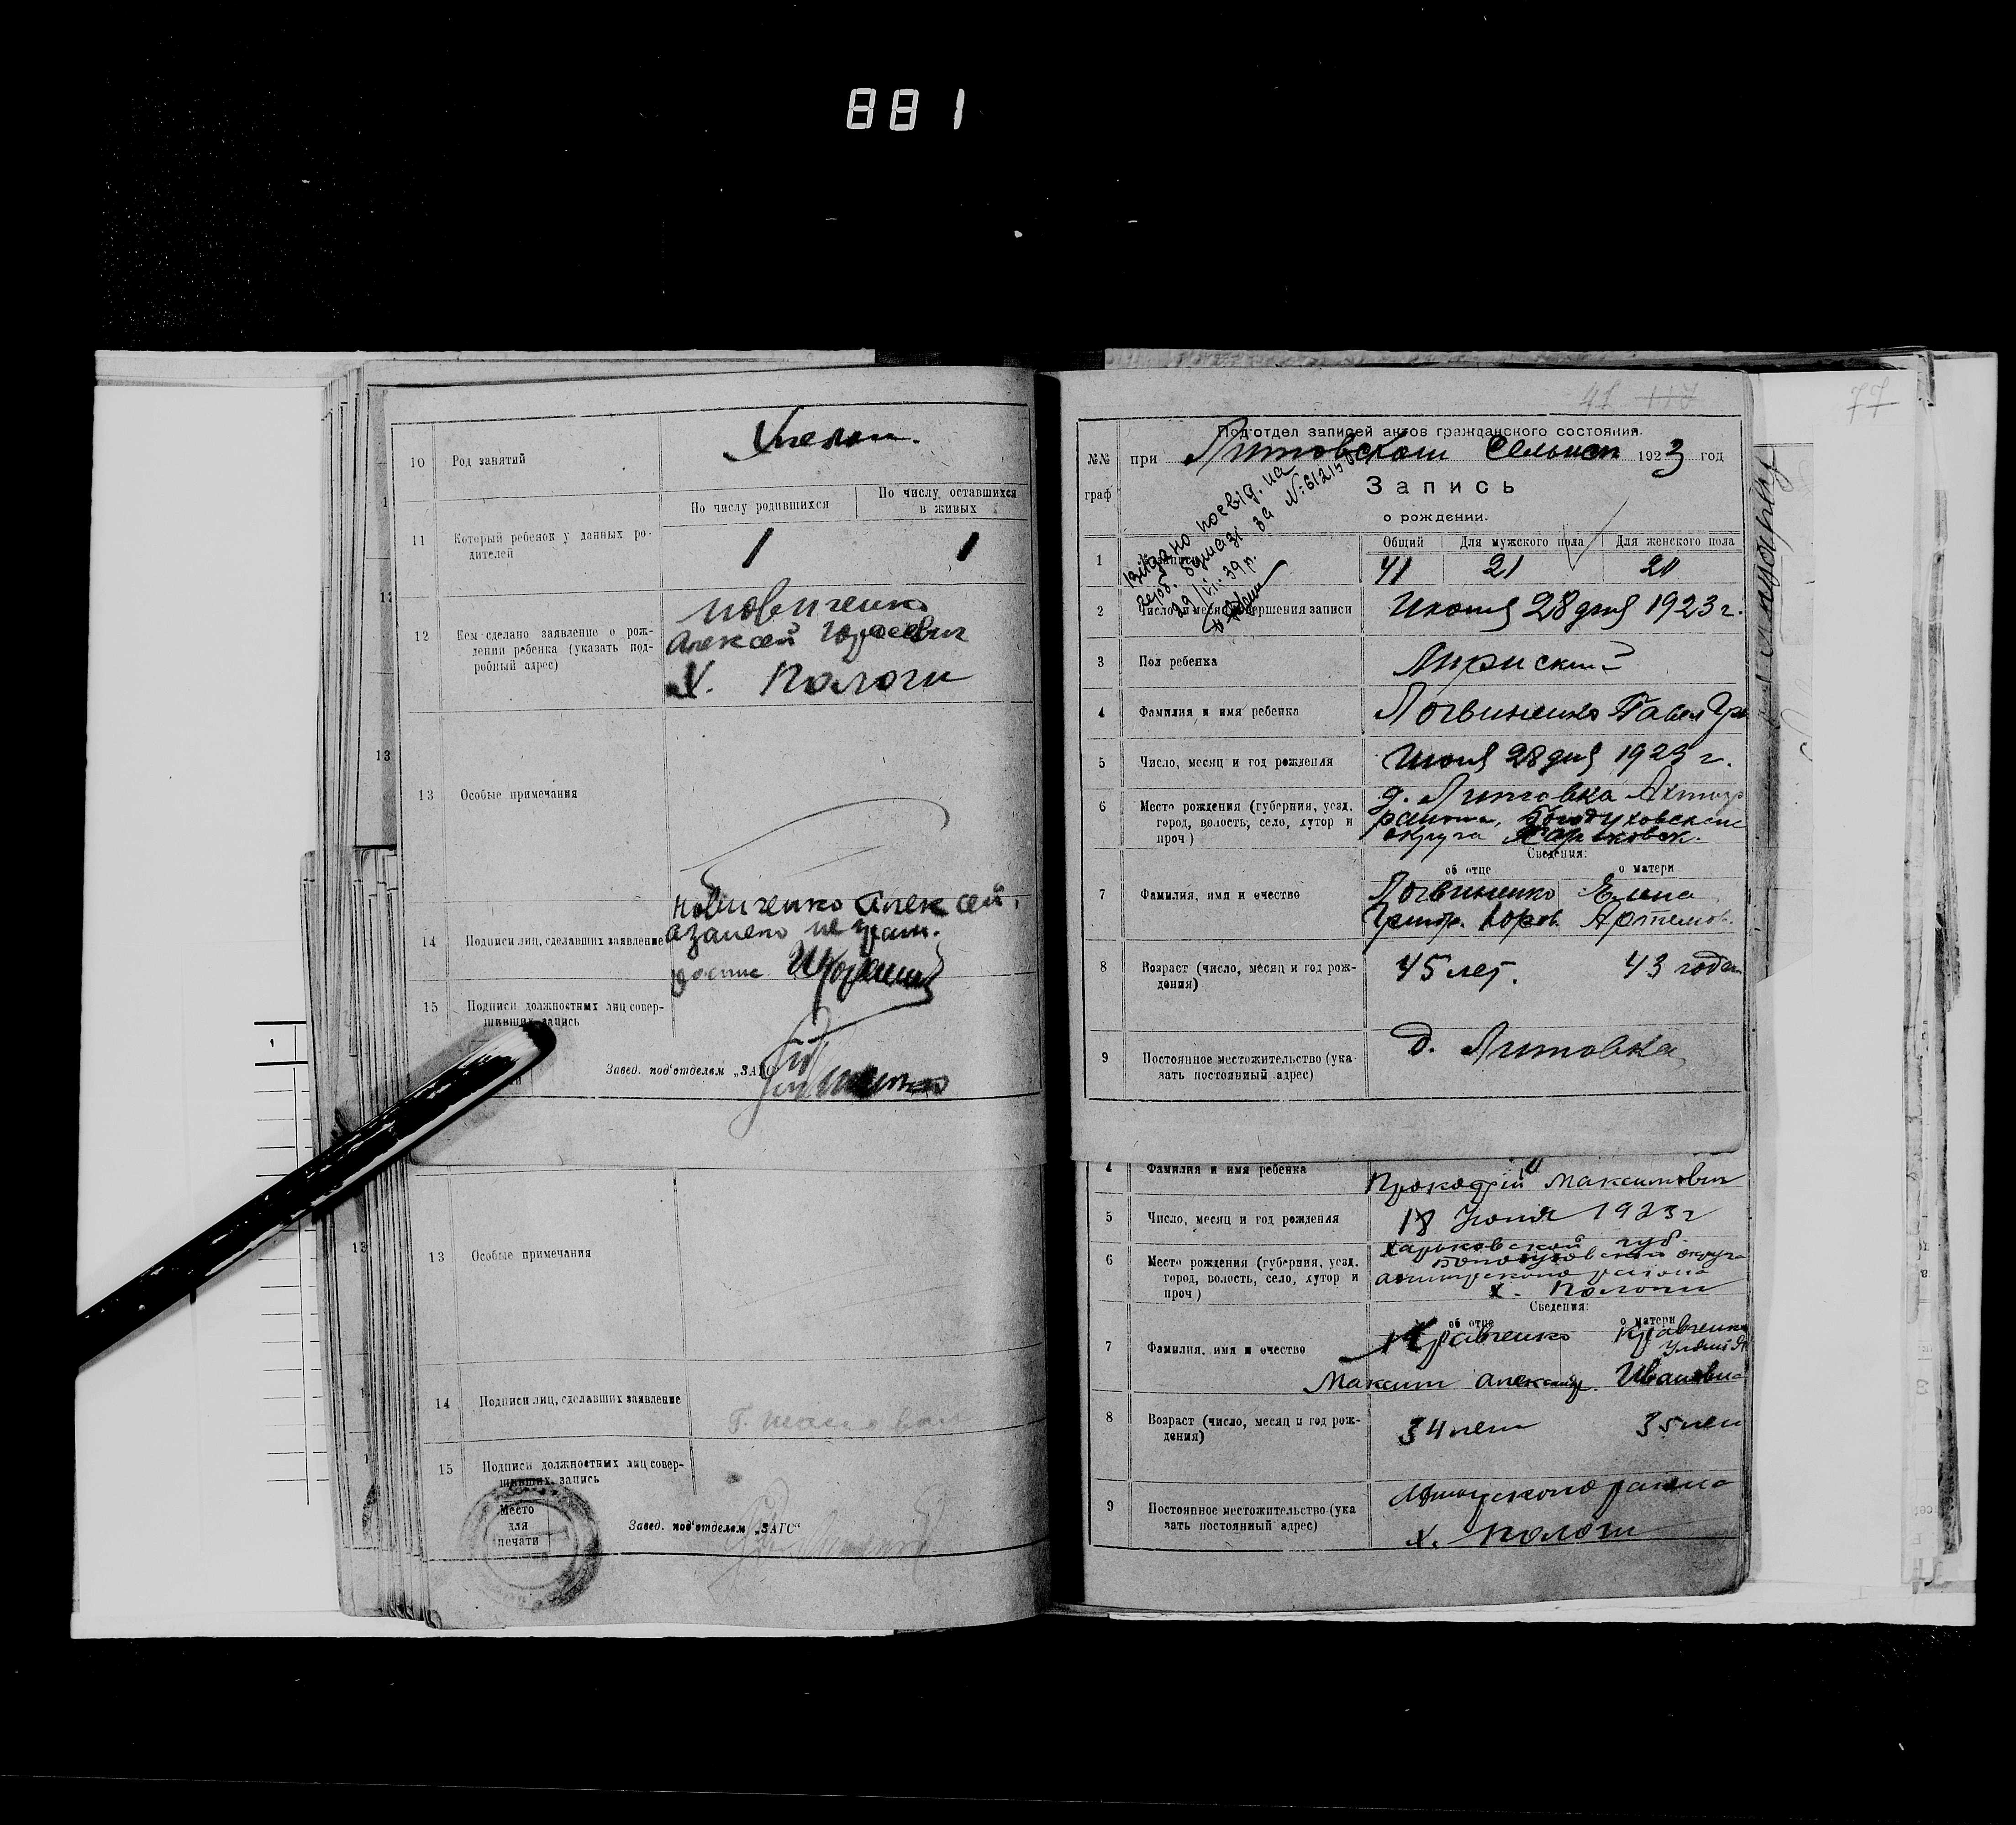 881
10 Род занятий
Хлепаш.
11 Который ребенок у данных ро-
дителей
По числу родившихся
По числу оставшихся
в живых
1 1
12 Кем сделано заявление о рож-
дении ребенка (указать под-
робный адрес)
Новиченко
Алексей
х. Пологи
13 Особые примечания
14 Подписи лиц, сделавших заявление
Новиченко Алексей,
а за него не грам.
15 Подписи должностных лиц совер-
шивших запись
Завед. под'отделом „ЗАГС“
13 Особые примечания
14 Подписи лиц, сделавших заявление
15 Подписи должностных лиц совер-
шивших запись
Место
для
печати
Завед. под'отделом „ЗАГС“
77
41 117
Под'отдел записей актов гражданского состояния.
№№
граф
при Литовском Сельисп 1923 год
Запись
о рождении.
Видано посвід. на
герб. бумазі за №
29/VII. 39 р.
Общий Для мужского пола Для женского пола
1 41 21 20
2 Число и месяц совершения записи Июня 28 дня 1923 г.
3 Пол ребенка
4 Фамилия и имя ребенка Логвиненко Павел Гр
5 Число, месяц и год рождения Июня 28 дня 1923 г.
6 Место рождения (губерния, уезд,
город, волость, село, хутор и
проч)
д. Литовка Ахтыр
района, Богодуховском
округа Харьковск.
Сведения:
об отце о матери
7 Фамилия, имя и очество
Логвиненко Елена
Григор. Артемов.
8 Возраст (число, месяц и год рож-
дения)
45 лет. 43 года
9 Постоянное местожительство (ука-
зать постоянный адрес)
д. Литовка
4 Фамилия и имя ребенка
Прокофий Максимович
5 Число, месяц и год рождения 18 Июня 1923 г
6 Место рождения (губерния, уезд,
город, волость, село, хутор и
проч)
Харьковской губ.
Богодуховской округа
ахтырского района
х. Пологи
Сведения:
об отце о матери
7 Фамилия, имя и очество
Кравченко Кравченко
Максим Александр. Ивановна
8 Возраст (число, месяц и год рож-
дения)
34 лет 35 лет
9 Постоянное местожительство (ука
зать постоянный адрес)
Ахтырского района
х. Пологи